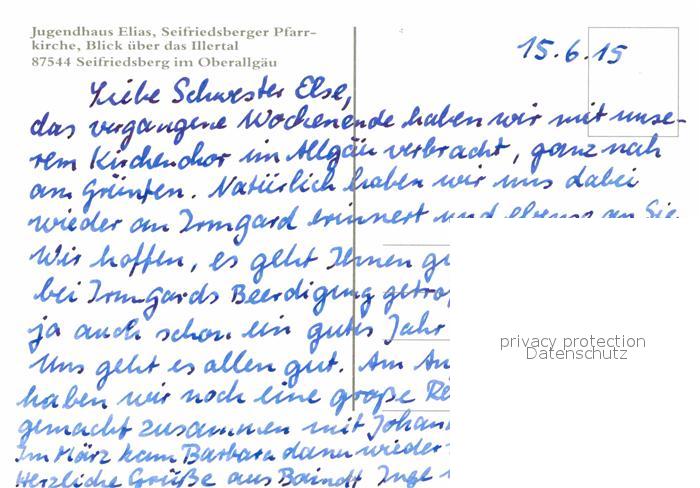 Jugendhaus Elias, Seifriedsberger Pfarr-
kirche, Blick über das Illertal
87544 Seifriedsberg im Oberallgäu
15.6.15
Liebe Schwester Else,
das vergangene Wochenende haben wir mit unse-
rem Kirchenchor im Allgäu verbracht, ganz nah
am Grünten. Natürlich haben wir uns dabei
wieder an Irmgard erinnert und ebenso an Sie
Wir hoffen, es geht Ihnen
bei Irmgards Beerdigung
ja auch schon ein gutes Jahr
Uns geht es allen gut. Am
haben wir noch eine große
gemacht zusammen mit
Im März kam Barbara dann wieder
Herzliche Grüße aus Baindt Inge
privacy protection
Datenschutz